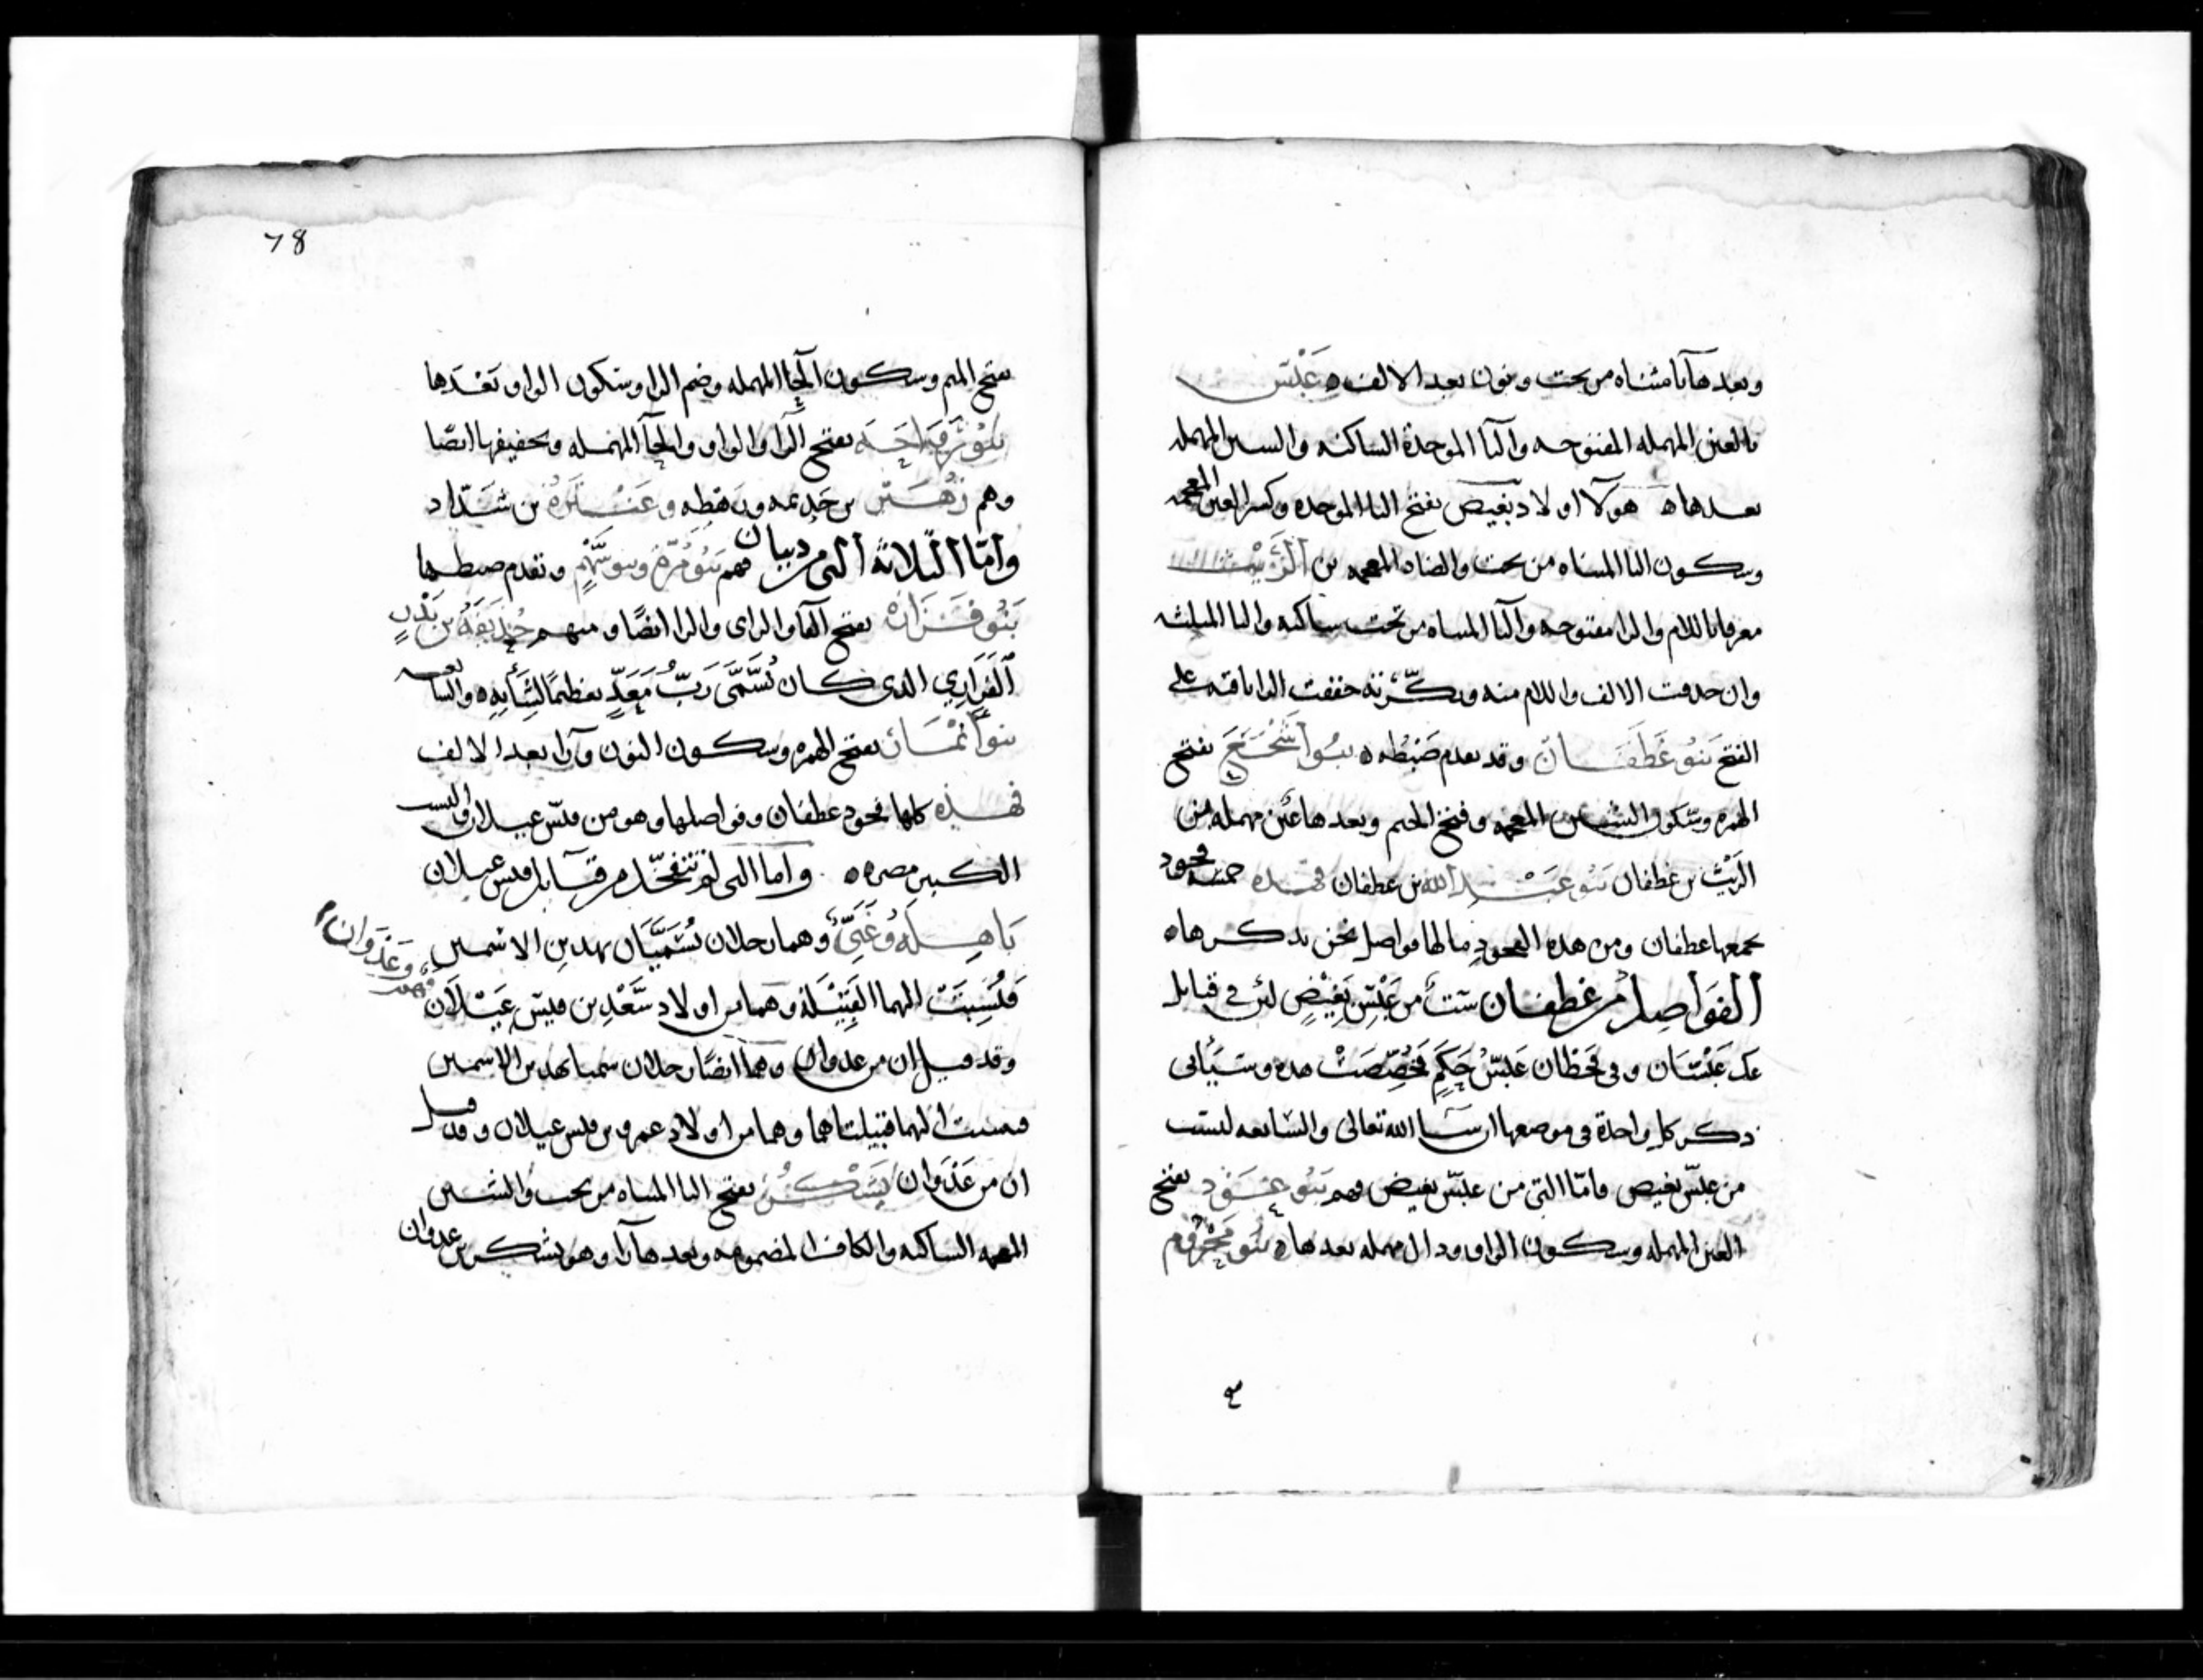 وبعدها يا مثناه من تحت ونون بعد الالف ه عَبْس
بالعين المهمله المفتوحه والبا الموحدة الساكنه والسين المهمله
بعدها ه هولآ اولاد بَغيض بفتح البا الموحده وكسر الغين المعجمه
وسكون اليا المثناه من تحت والضاد المعجمه بن الرَّيْث
معرفا باللام والرا مفتوحه واليا المثناه من تحت ساكنه والثا المثلثه
وان حذفت الالف واللام منه ونكّرته خففت الرا باقيه على
الفتح بَنُو غَطَفَان وقد تقدم ضَبْطُه ه بنُوا أَشْجَعَ بفتح
الهمزه وسكون الشين المعجمه وفتح الجيم وبعدها عَين مهمله من
الرَّيْث بن غطفان بَنُو عَبْدِ الله بن غطفان فهذه خمسه فخود
يجمعها غطفان ومن هذه الفخودِ ما لها فواصل نحن نذكرها ه
الفَوَاصِلُ من غطفان ستُّ من عَبْسِ بَغِيْضٍ لئن في قبايل
عك عَبْسَان وفي قحطان عَبْسُ حَكَمٍ فخُصِّصَتْ هذه وسَيَأتي
ذكر كل واحدة في موضعها ان شا الله تعالى والسابعه ليست
من عبس بغيض فامّا التي من عبس بغيض فهم بَنُو عَوْد بفتح
العين المهمله وسكون الواو ودال مهمله بعدها ه بنُو مَحْرُوم
78
بفتح الميم وسكون الحآ المهمله وضم الرا وسكون الواو بَعْدَها
بَنُو رَوَاحَه بفتح الرآ والواو والحآ المهمله وتخفيفها ايضًا
وهم زُهَيْر بن جَذِيمه ورَهطه وعَنْتَرَةُ بن شَدَّاد
وأمّا الثلاثة التي من ذبيان فهم بَنُو مُرَّة وبنو سَهْمٍ وتقدم ضبطهما
بَنُو فَزَارَة بفتح الفآ والزاى والرا ايضًا ومنهم حُذَيفَةُ بن بَدْرٍ
الفَزَارِي الذى كان يُسَمَّى رَبَّ مَعَدٍّ تعظيمًا لشَأنِهِ ه والسابعه
بنو أَنْمَار بفتح الهمزه وسكون النون ورآ بعد الالف
فهذه كلها فخود غطفان وفواصلها وهو من قيس عيلان واليس
الكبير مضر ه واما التى لم تتفخّذ من قبآيل قيس عيلان
بَاهِلَه وَغَنِيّ وهما رجلان يُسَمَّيَان بهذين الاسمين
وعَدْوَان
وفهم
فَنُسِبَتْ اليهما القَبِيْلَة وهما من اولاد سَعْدِ بن قيس عَيْلَان
وقد قيل إن من عدوان وهما ايضًا رجلان سميا بهذين الاسمين
فنسبت اليهما قبيلتاهما وهما من اولاد عمرو بن قيس عيلان وقد قيل
ان من عَدْوَان يَشْكُر بفتح اليا المثناه من تحت والشين
المعجمه الساكنه والكاف المضمومه وبعدها رآ وهو يشكر بن عدوان